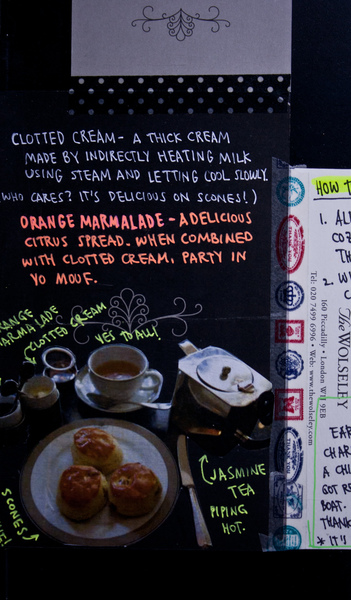 CLOTTED CREAM- A THICK CREAM
MADE BY INDIRECTLY HEATING MILK
USING STEAM AND LETTING COOL SLOWLY.
(WHO CARES? IT'S DELICIOUS ON SCONES!)
ORANGE MARMALADE - A DELICIOUS
CITRUS SPREAD. WHEN COMBINED
WITH CLOTTED CREAM, PARTY IN
YO MOUF.
ORANGE
MARMALADE
CLOTTED CREAM
YES TO ALL!
JASMINE
TEA
PIPING
HOT.
SCONES
HOW T
1. AL
COZ
TH
2. W
THE WOLSELEY
160 Piccadilly • London W1J 9EB
Tel: 020 7499 6996 • Web: www.thewolseley.com
EAR
CHAR
A CHI
GOT R
BOAT.
THAN
* IT'S